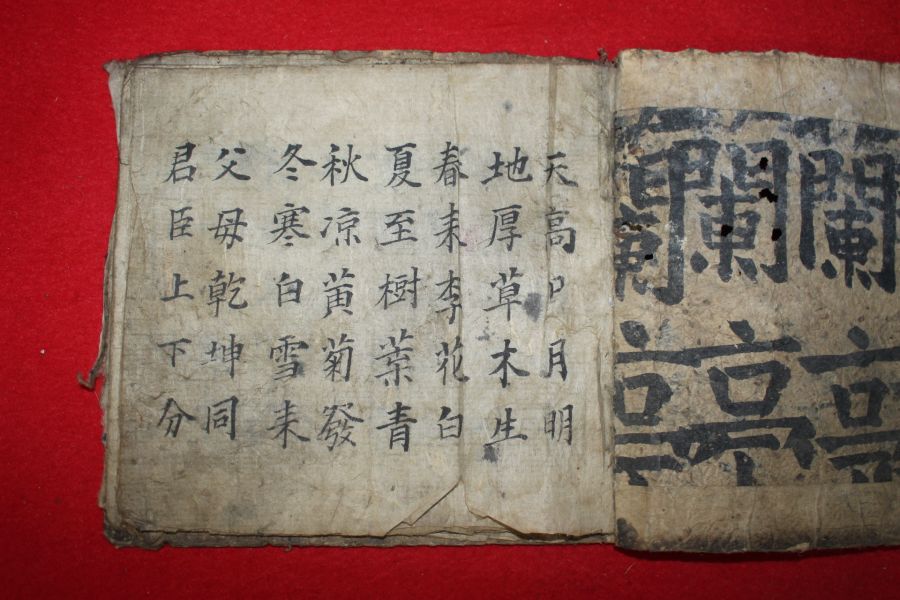 蘭亭
蘭亭
蘭亭
天高日月明
地厚草木生
春来李花白
夏至樹葉青
秋凉黄菊發
冬寒白雪来
父母乾坤同
君臣上下分